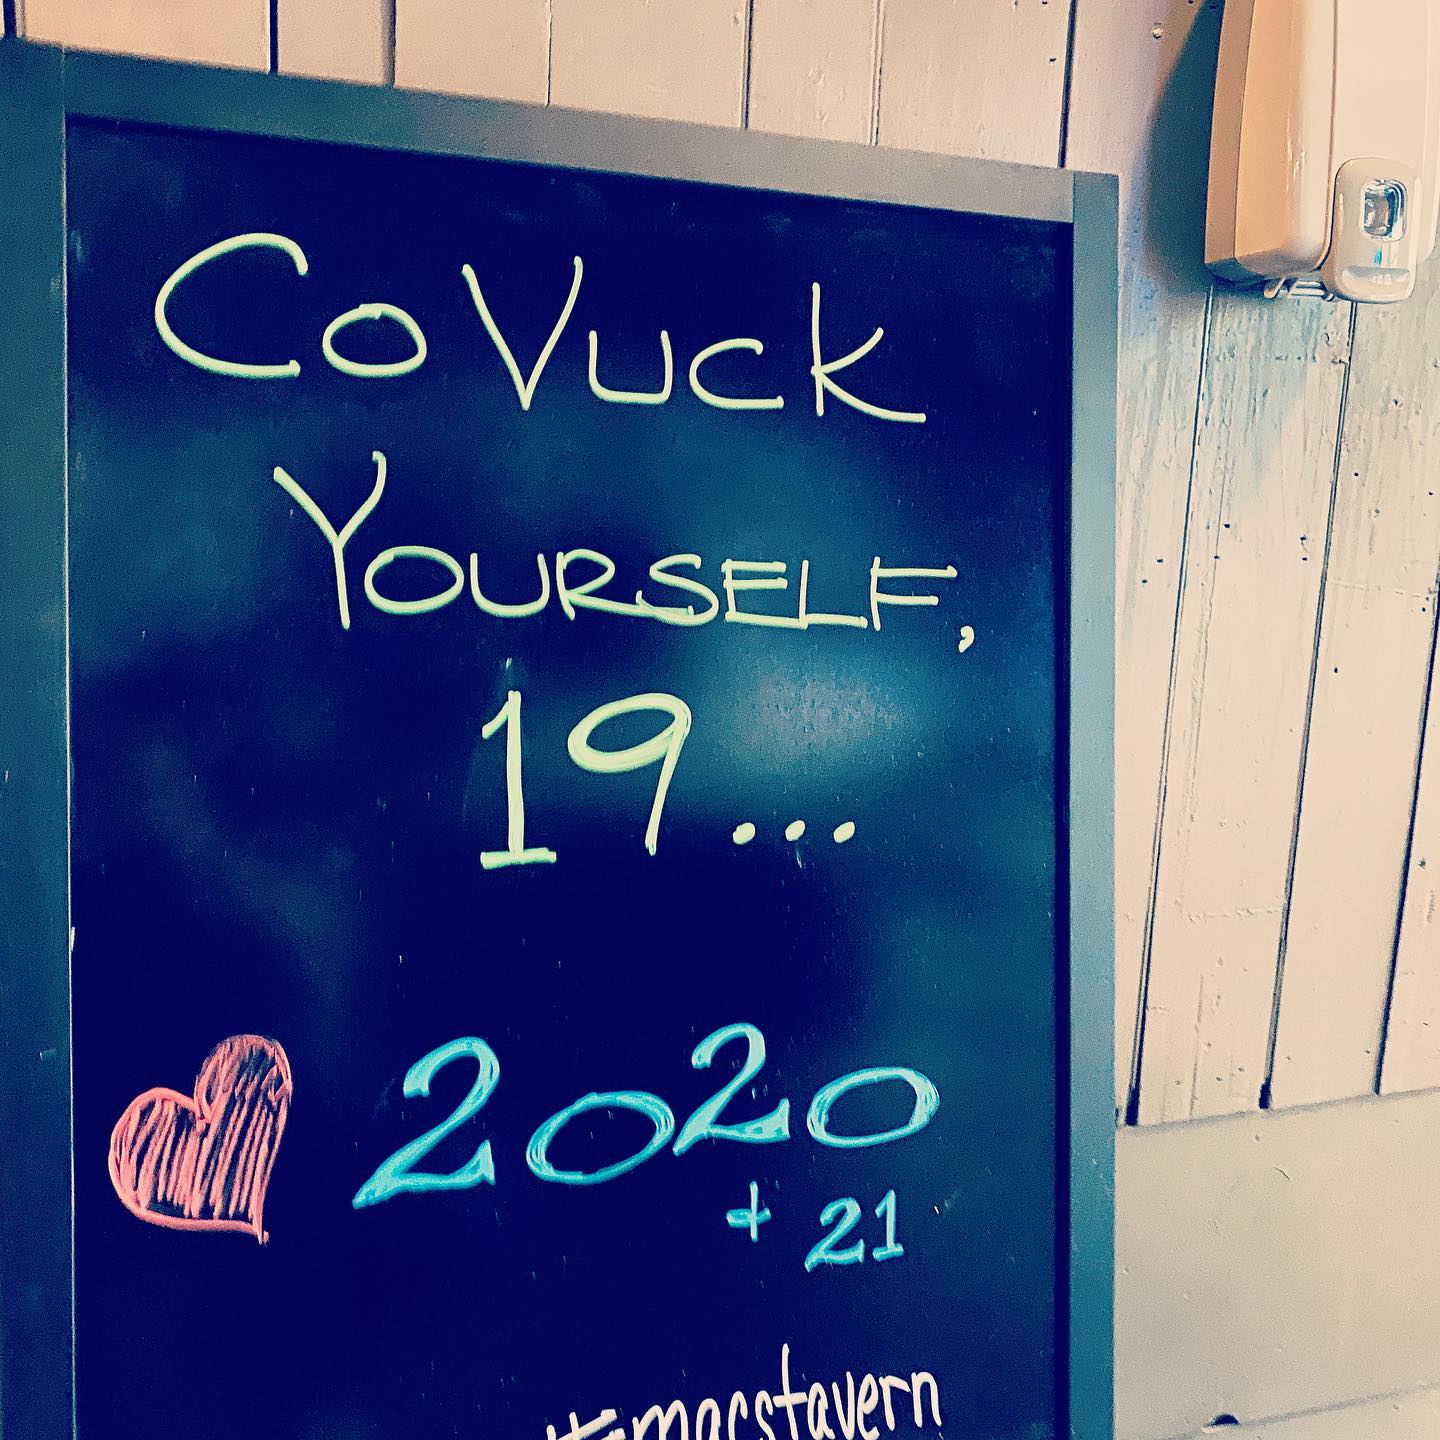 CoVuck
Yourself,
19...
2020
+ 21
#macstavern